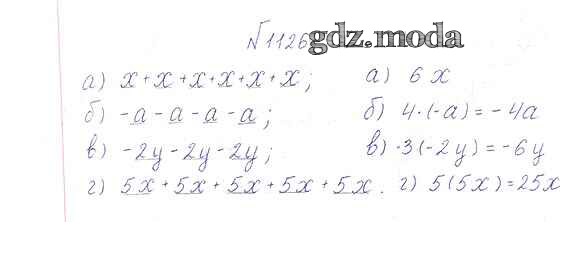 №1126 gdz.moda
а) x + x + x + x + x + x ; а) 6x
б) - a - a - a - a ; б) 4·(-a) = - 4a
в) - 2y - 2y - 2y ; в) ·3(-2y) = -6y
г) 5x + 5x + 5x + 5x + 5x . г) 5(5x) = 25x